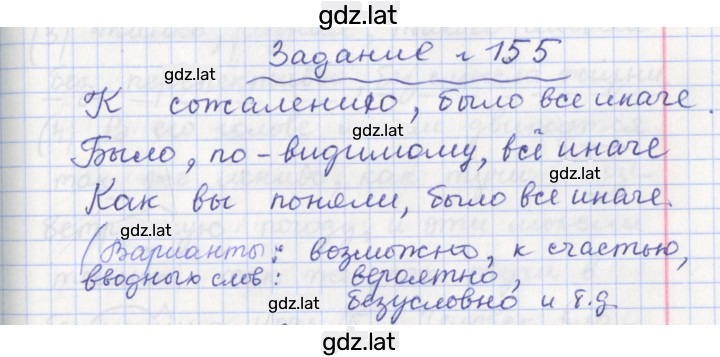 gdz.lat
Задание 155
gdz.lat
К сожалению, было все иначе.
gdz.lat
Было, по-видимому, всё иначе
gdz.lat
Как вы поняли, было все иначе.
gdz.lat
(Варианты: возможно, к счастью,
вводных слов: вероятно,
gdz.lat
безусловно и т.д
gdz.lat